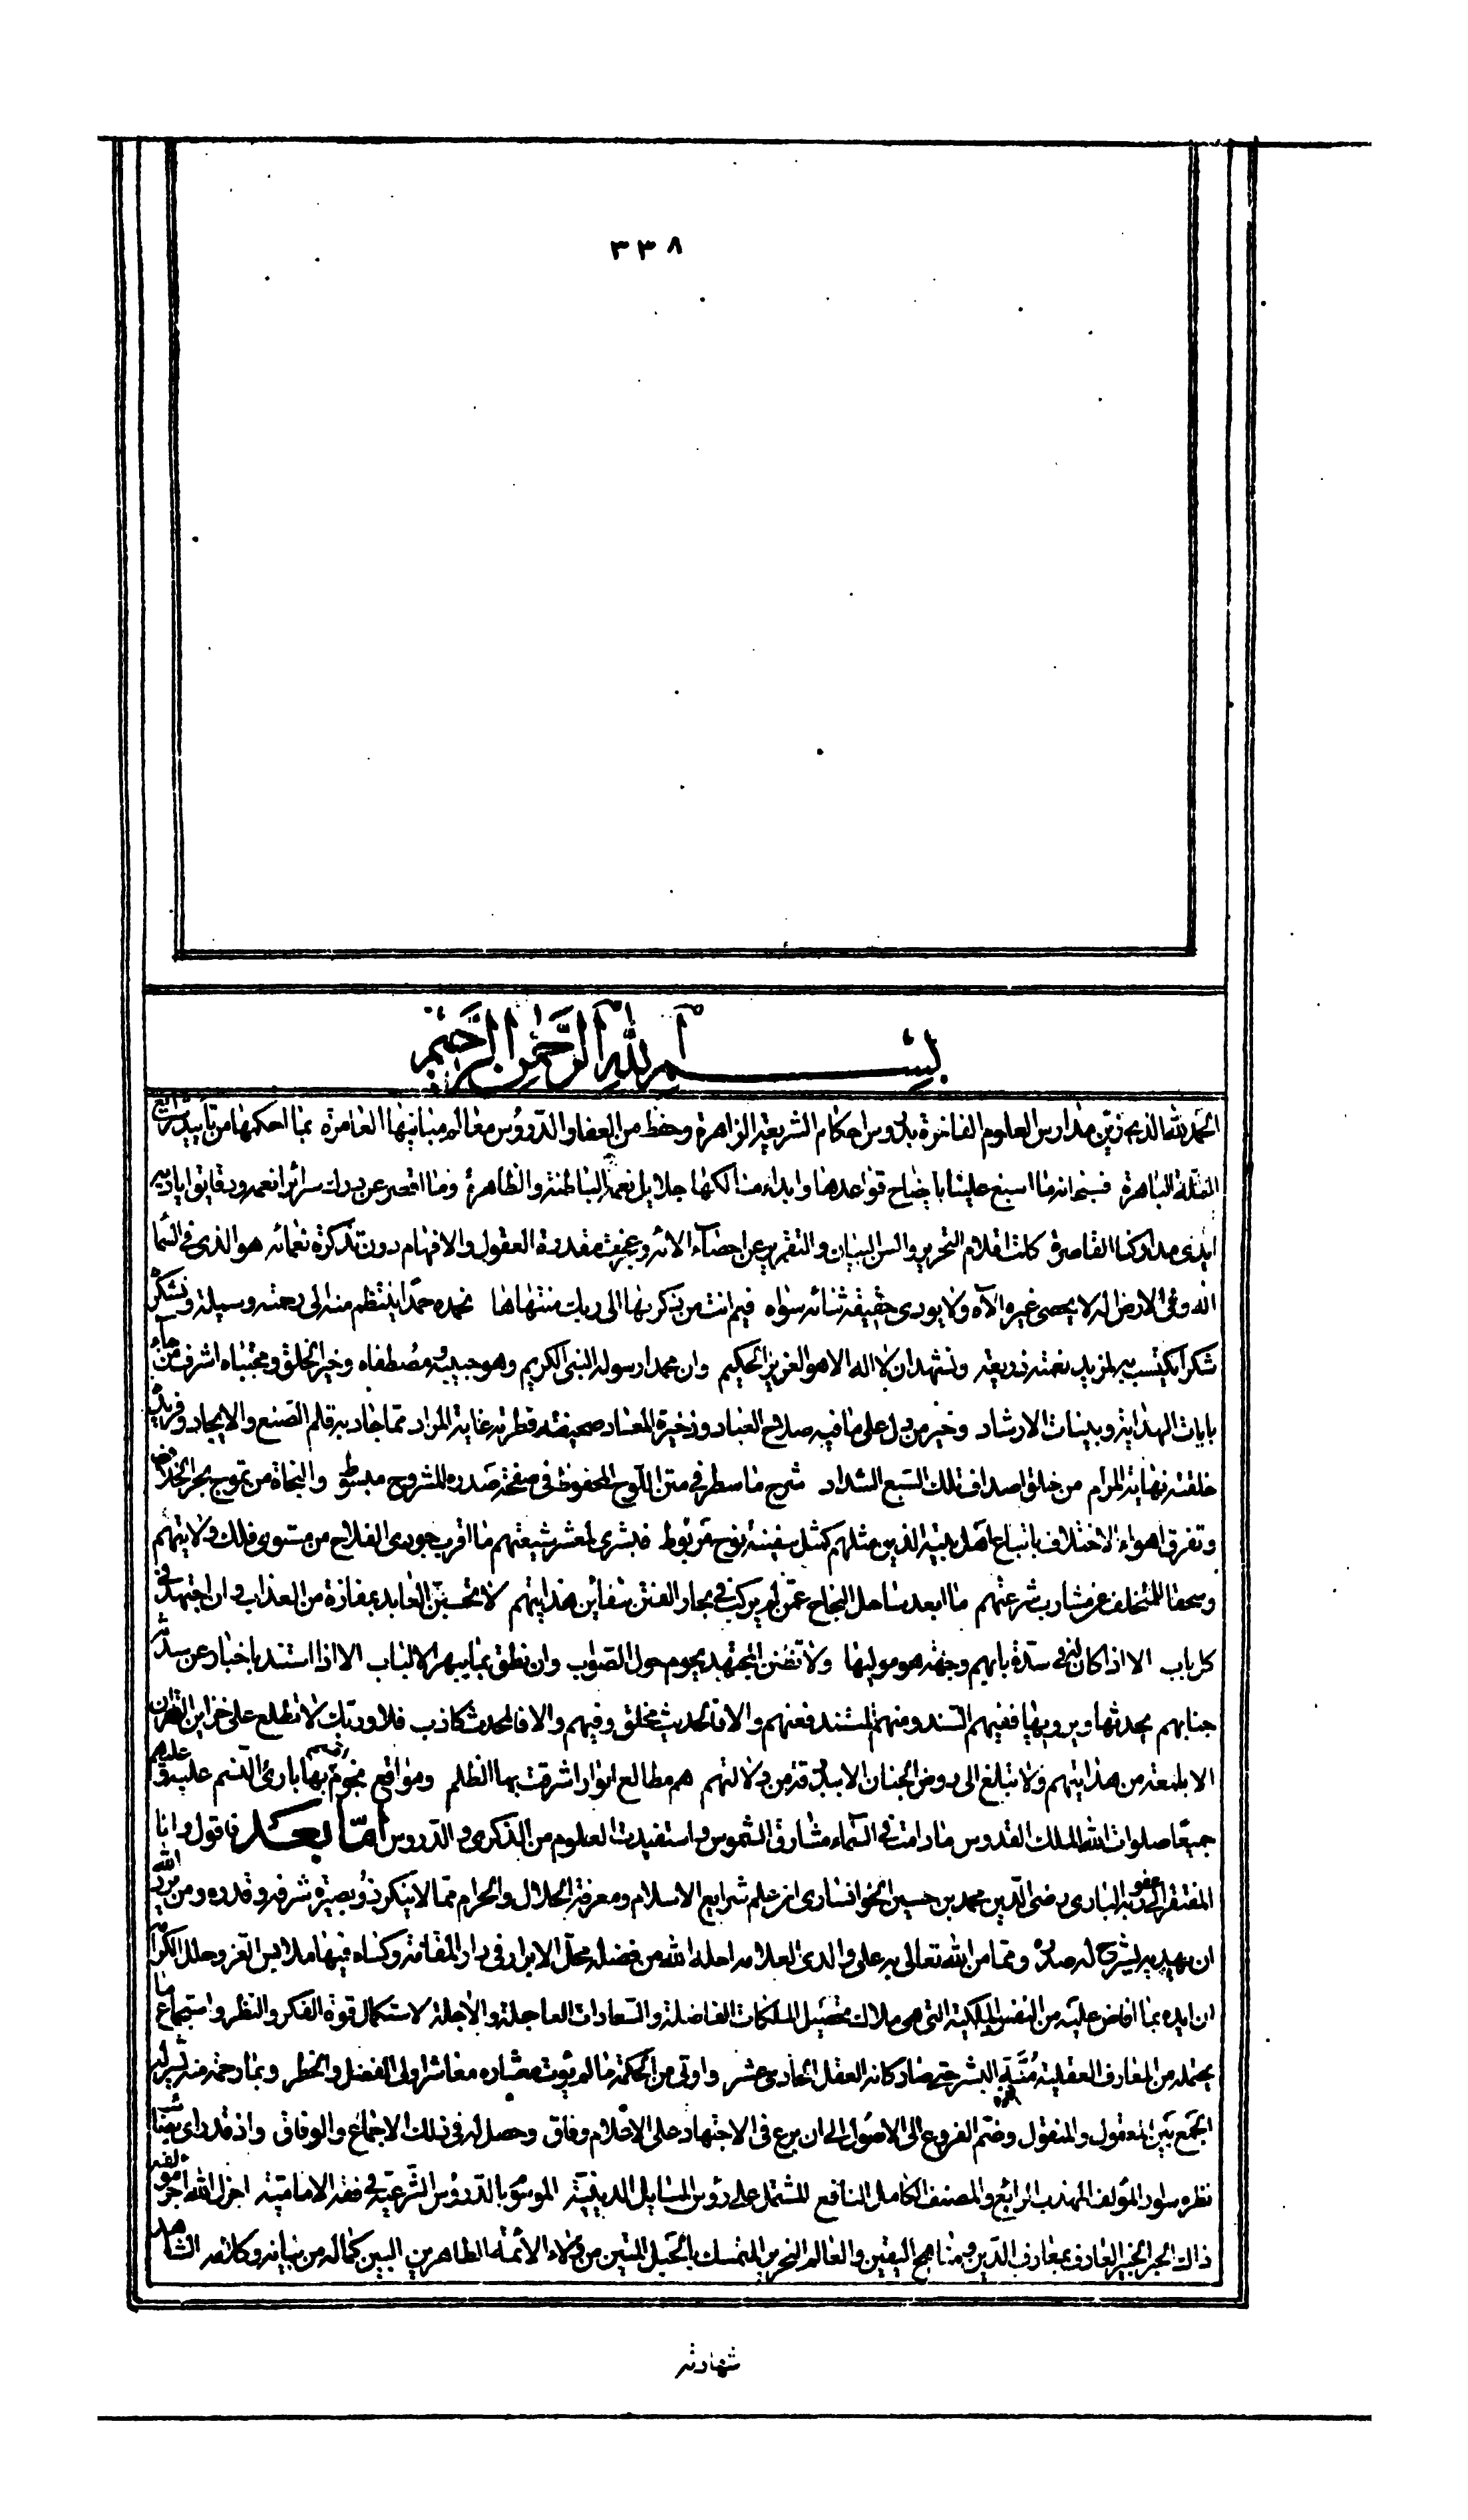 ٣٣٨
بسم الله الرحمن الرحيم
الحمد لله الذي زين مدارس العلوم الفاخرة بدروس احكام الشريعة الزاهرة وحفظ من العفا والدروس معالم مبانيها الغامرة بما احكمها من تأييد شرايع
المقتلة الباهرة فسبحانه ما اسبغ علينا بايضاح قواعدها وابداء مسالكها جلايل نعمه الباطنة والظاهرة وما اقصر عن درك سرائر انعمه ودقايق اياديه
ايدى مداركنا القاصرة كلت اقلام التحرير والسن البيان والتقرير عن احصاء الائه وعجزت مقدرة العقول والافهام دون تذكرة نعمائه هو الذى فى السما
اله وفى الارض اله لا يحصى غيره الآه ولا يودى حقيقة ثنائه سواه فيم انت من ذكريها الى ربك منتهاها نحمده حمدا ينتظم منه الى رحمته وسيلة ونشكره
شكرا يكتسب به لمزيد نعمته ذريعة ونشهد ان لا اله الا هو العزيز الحكيم وان محمدا رسوله النبى الكريم وهو حبيبه ومصطفاه وخير الخلق ومجتباه اشرف من جاء
بايات الهداية وبينات الارشاد وخير من دل على ما فيه صلاح العباد وذخيرة المعاد صحيفة فطرته غاية المراد مما جاد به قلم الصنع والايجاد وفريد
خلقته نهاية المرام من خلق اصداف تلك السبع الشداد شرح ما سطر فى متن اللوح المحفوظ فى صفحة صدره المشروح مبسوط والنجاة من تموج بحر الخلاف
وتفرق اهواء الاختلاف باتباع اهل بيته الذين مثلهم كمثل سفينة نوح مربوط فبشرى لمعشر شيعتهم ما اقرب جودى الفلاح من مستوى فلك ولايتهم
وسحقا للمتخلف عن مشارب شرعتهم ما ابعد ساحل النجاح عمن لم يركب فى بحار الفتن سفائن هدايتهم لا تحسبن العابد بمفازة من العذاب وان اجتهد فى
كل باب الا اذا كان له فى سدة بابهم وجهة هو موليها ولا تظنن المجتهد يحوم حول الصواب وان نطق بما يبهر الالباب الا اذا استند باخبار عن سدنة
جنابهم يحدثها ويرويها ففيهم السند ومنهم المستند فعنهم والا فالحديث مختلق وفيهم والا فالمحدث كاذب فلا وربك لا تطلع على خزاين القران
الا بلمعة من هدايتهم ولا تبلغ الى روض الجنان الا ببدرقة من دلالتهم هم مطالع انوار اشرقت بها الظلم ومواقع نجوم اقسم بها بارئ النسم عليه وعليهم
جميعا صلوات الله الملك القدوس ما دامت فى السماء مشارق الشموس واستفيدت العلوم من الذكرى والدروس اما بعد فاقول وانا
المفتقر الى عفو ربه البارى رضى الدين محمد بن حسين الخوانسارى ان علم شرايع الاسلام ومعرفة الحلال والحرام مما لا ينكر ذو بصيرة شرفه وقدره ومن يرد الله
ان يهديه يشرح له صدره ومما من الله تعالى به على والدى العلامة احله الله من فضله محل الابرار فى دار المقامة وكساه فيها ملابس العز وحلل الكرامة
ان ايده بما افاض عليه من النفس الملكية التى هى ملاك تحصيل الملكات الفاضلة والسعادات العاجلة والاجلة لاستكمال قوة الفكر والنظر واستجماع ما
يحتمله من المعارف العقلية منة البشر حتى صار كانه العقل الحادى عشر واوتى من الحكمة ما لم يؤت معشاره معاشر اولى الفضل والخطر وبما رحمة منه يسر له
الجمع بين المعقول والمنقول وضم الفروع الى الاصول الى ان برع فى الاجتهاد على الاعلام وفاق وحصل له فى ذلك الاجماع والوفاق واذ قد راى بثاقب
نظره سواد المؤلف المهذب الرائع والمصنف الكامل النافع المشتمل على رؤس المسايل الدينية الموسوم بالدروس الشرعية فى فقه الامامية اجزل الله اجر مؤلفه
ذاك الحبر الخبير العارف بمعارف الدين ومناهج اليقين والعالم النحرير المتمسك بالحبل المتين من ولاء الائمة الطاهرين البين كماله من بيانه وكلامه الشاهد
شهادته